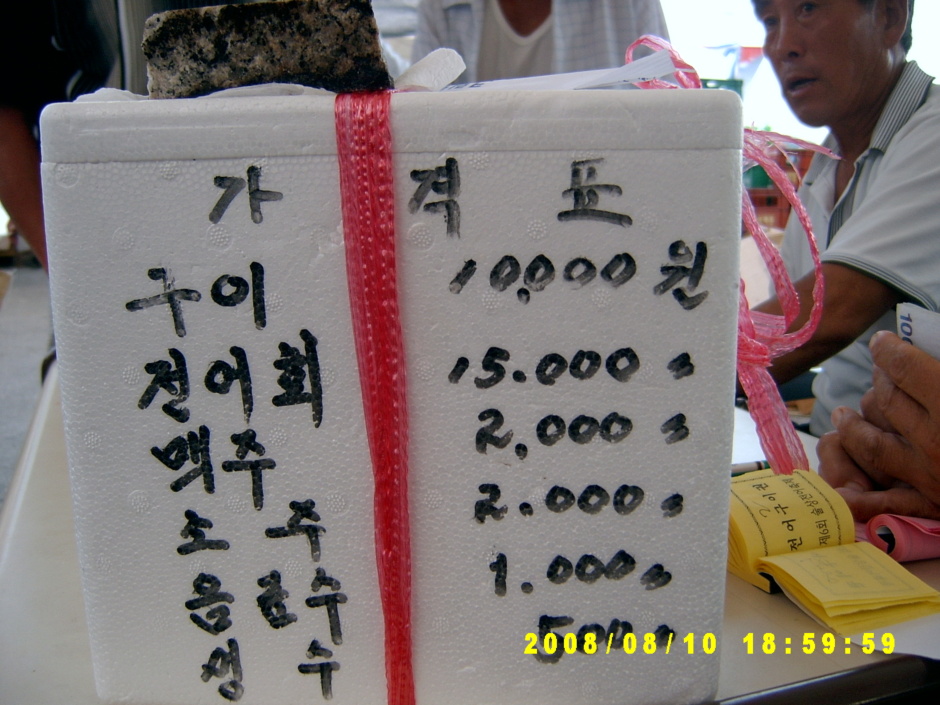 가 격 표
구이 10,000 원
전어회 15.000 〃
맥주 2,000 〃
소 주 2.000 〃
음 료 수 1.000 〃
생 수 500 〃
2008/08/10 18:59:59
전어구이권